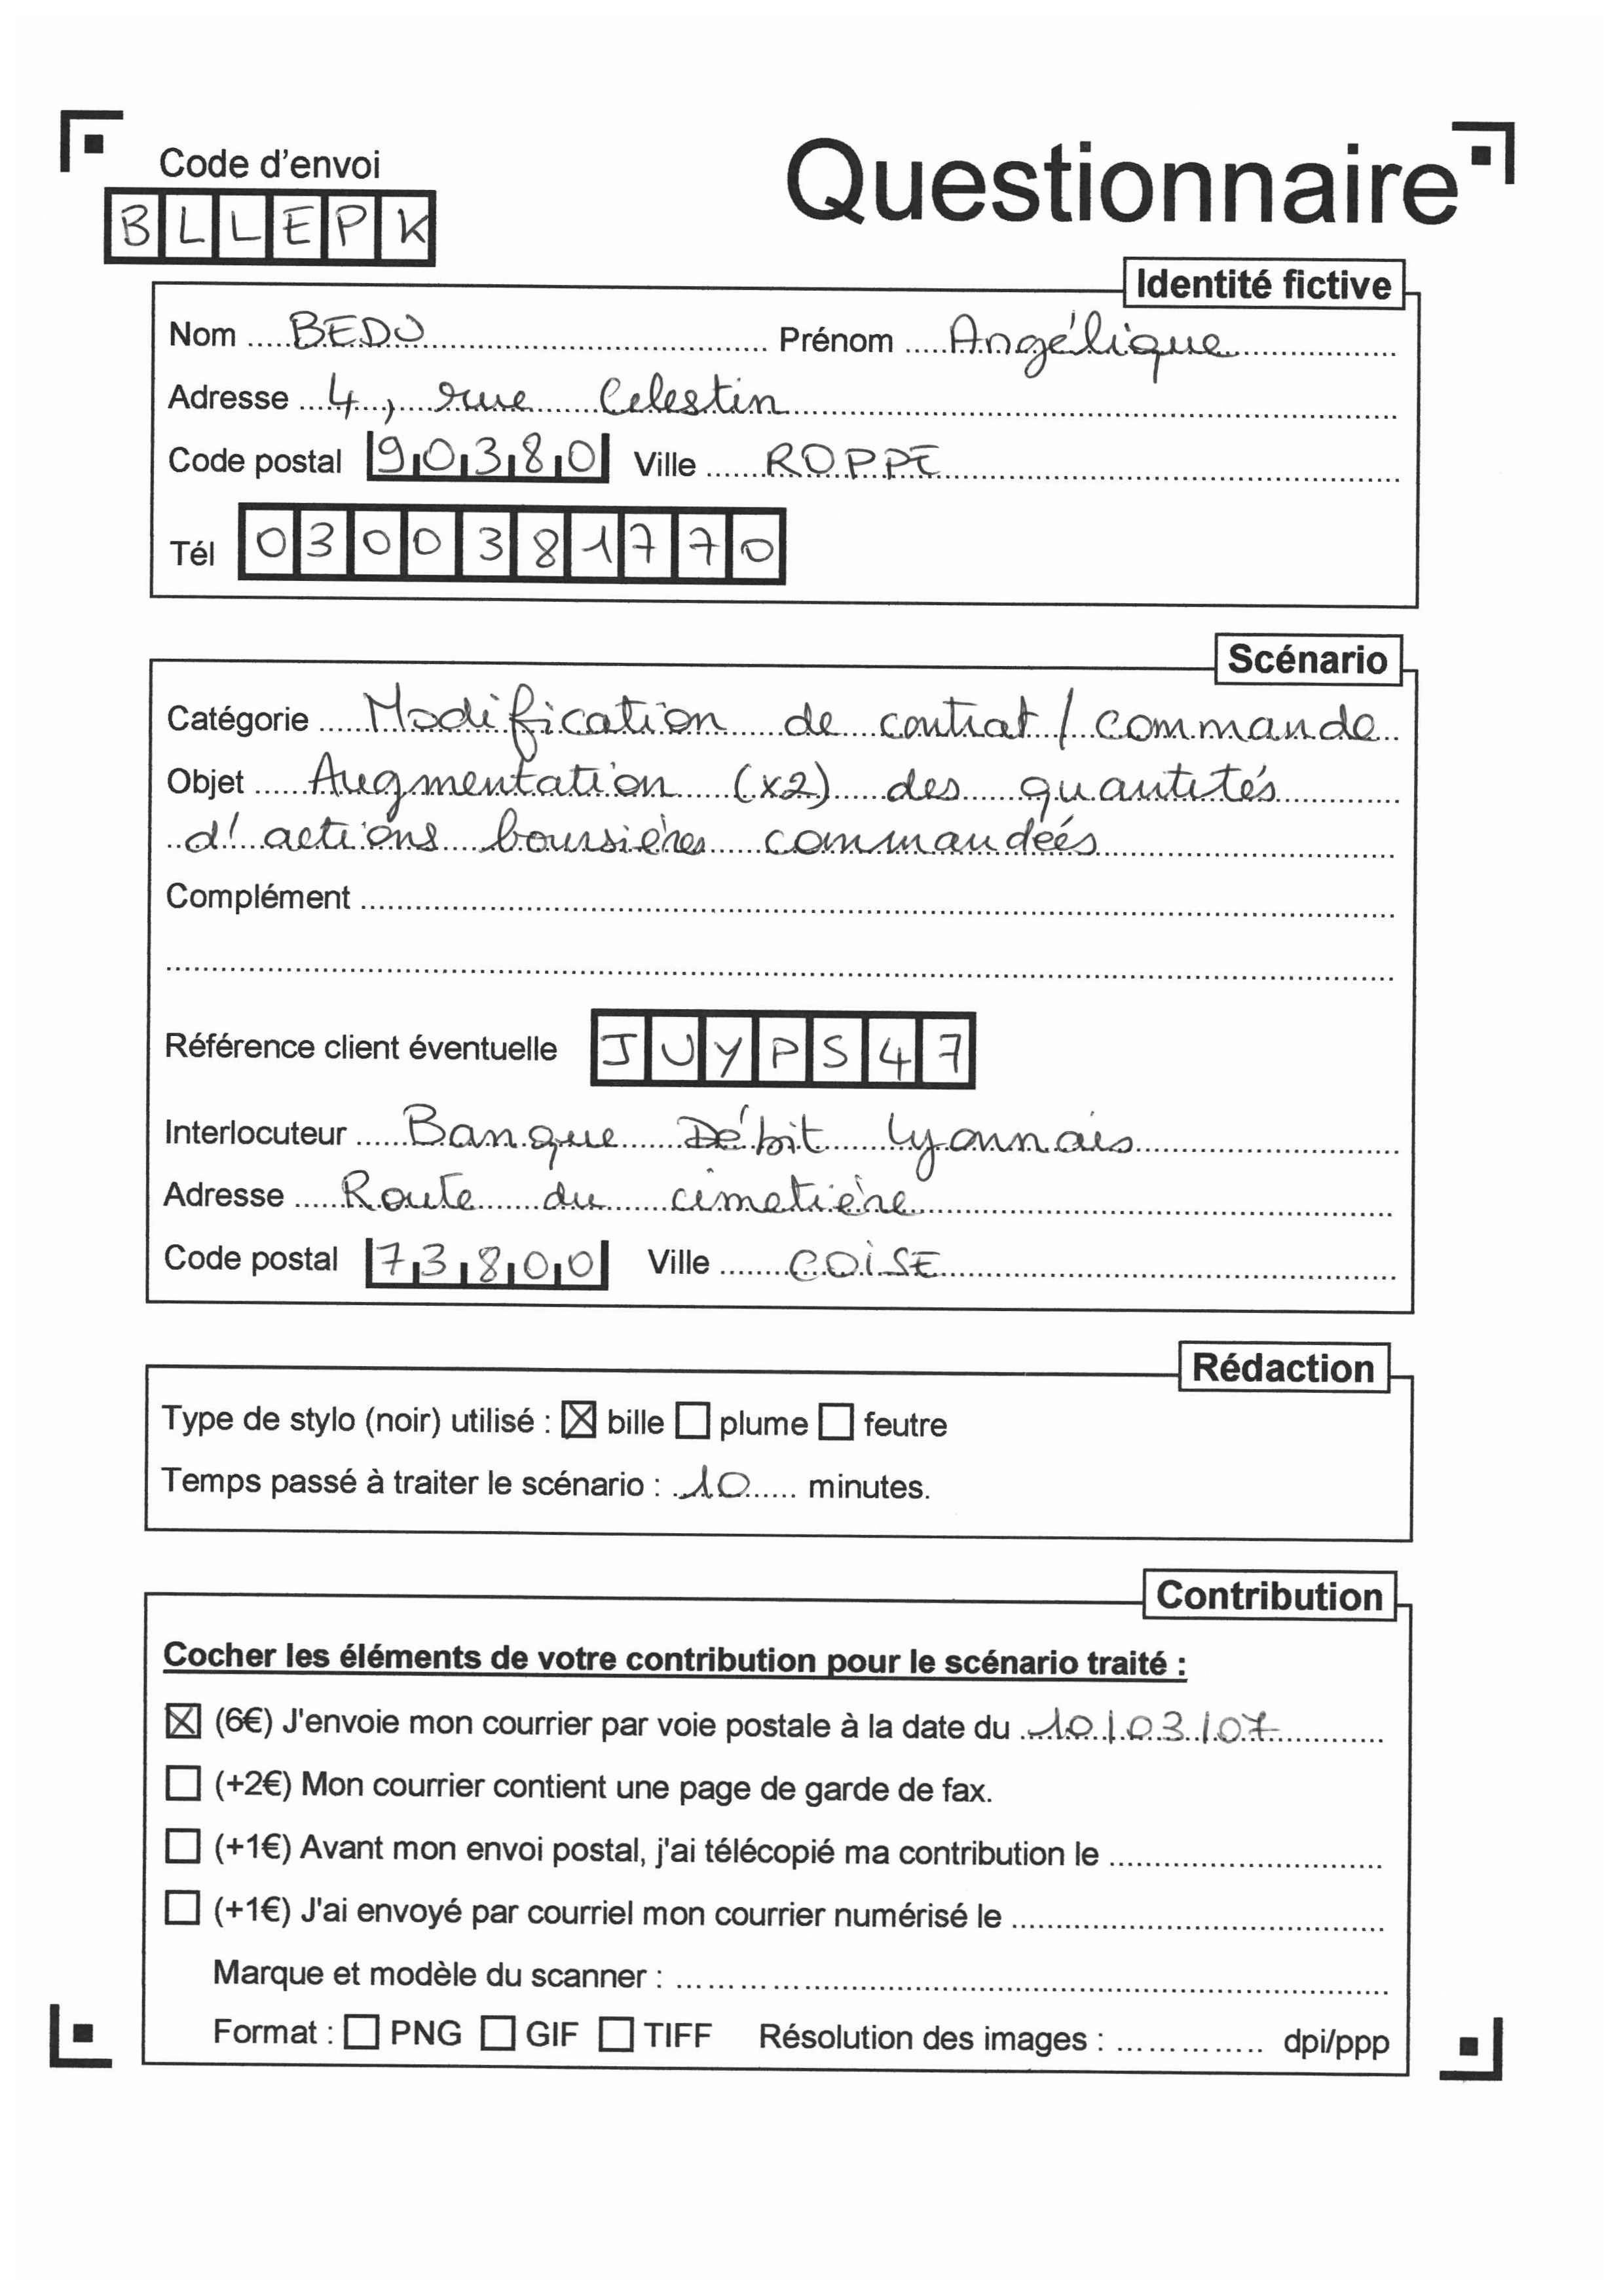 Code d'envoi
Questionnaire
BLLEPK
Identité fictive
Nom BEDU Prénom Angélique
Adresse 4, rue Celestin
Code postal 90380 Ville ROPPE
Tél 0300381770
Scénario
Catégorie Modification de contrat / commande
Objet Augmentation (x2) des quantités
d'actions boursières commandées
Complément
Référence client éventuelle JUYPS47
Interlocuteur Banque Débit Lyonnais
Adresse Route du cimetière
Code postal 73800 Ville COISE
Rédaction
Type de stylo (noir) utilisé : ☒ bille ☐ plume ☐ feutre
Temps passé à traiter le scénario : 10 minutes.
Contribution
Cocher les éléments de votre contribution pour le scénario traité :
☒ (6€) J'envoie mon courrier par voie postale à la date du 10/03/07
☐ (+2€) Mon courrier contient une page de garde de fax.
☐ (+1€) Avant mon envoi postal, j'ai télécopié ma contribution le
☐ (+1€) J'ai envoyé par courriel mon courrier numérisé le
Marque et modèle du scanner :
Format : ☐ PNG ☐ GIF ☐ TIFF Résolution des images : dpi/ppp